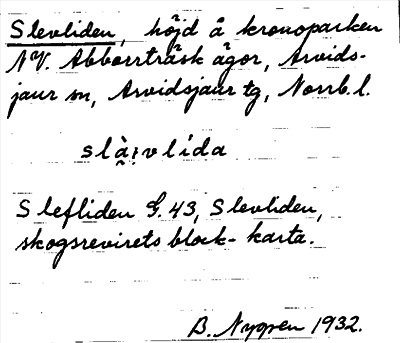 Slevliden, höjd å kronoparken
NV. Abborrträsk ägor, Arvids-
jaur sn, Arvidsjaur tg, Norrb. l.
slà̤i̯vlída
Slefliden G. 43, Slevliden,
skogsrevirets block-karta.
B. Nygren 1932.